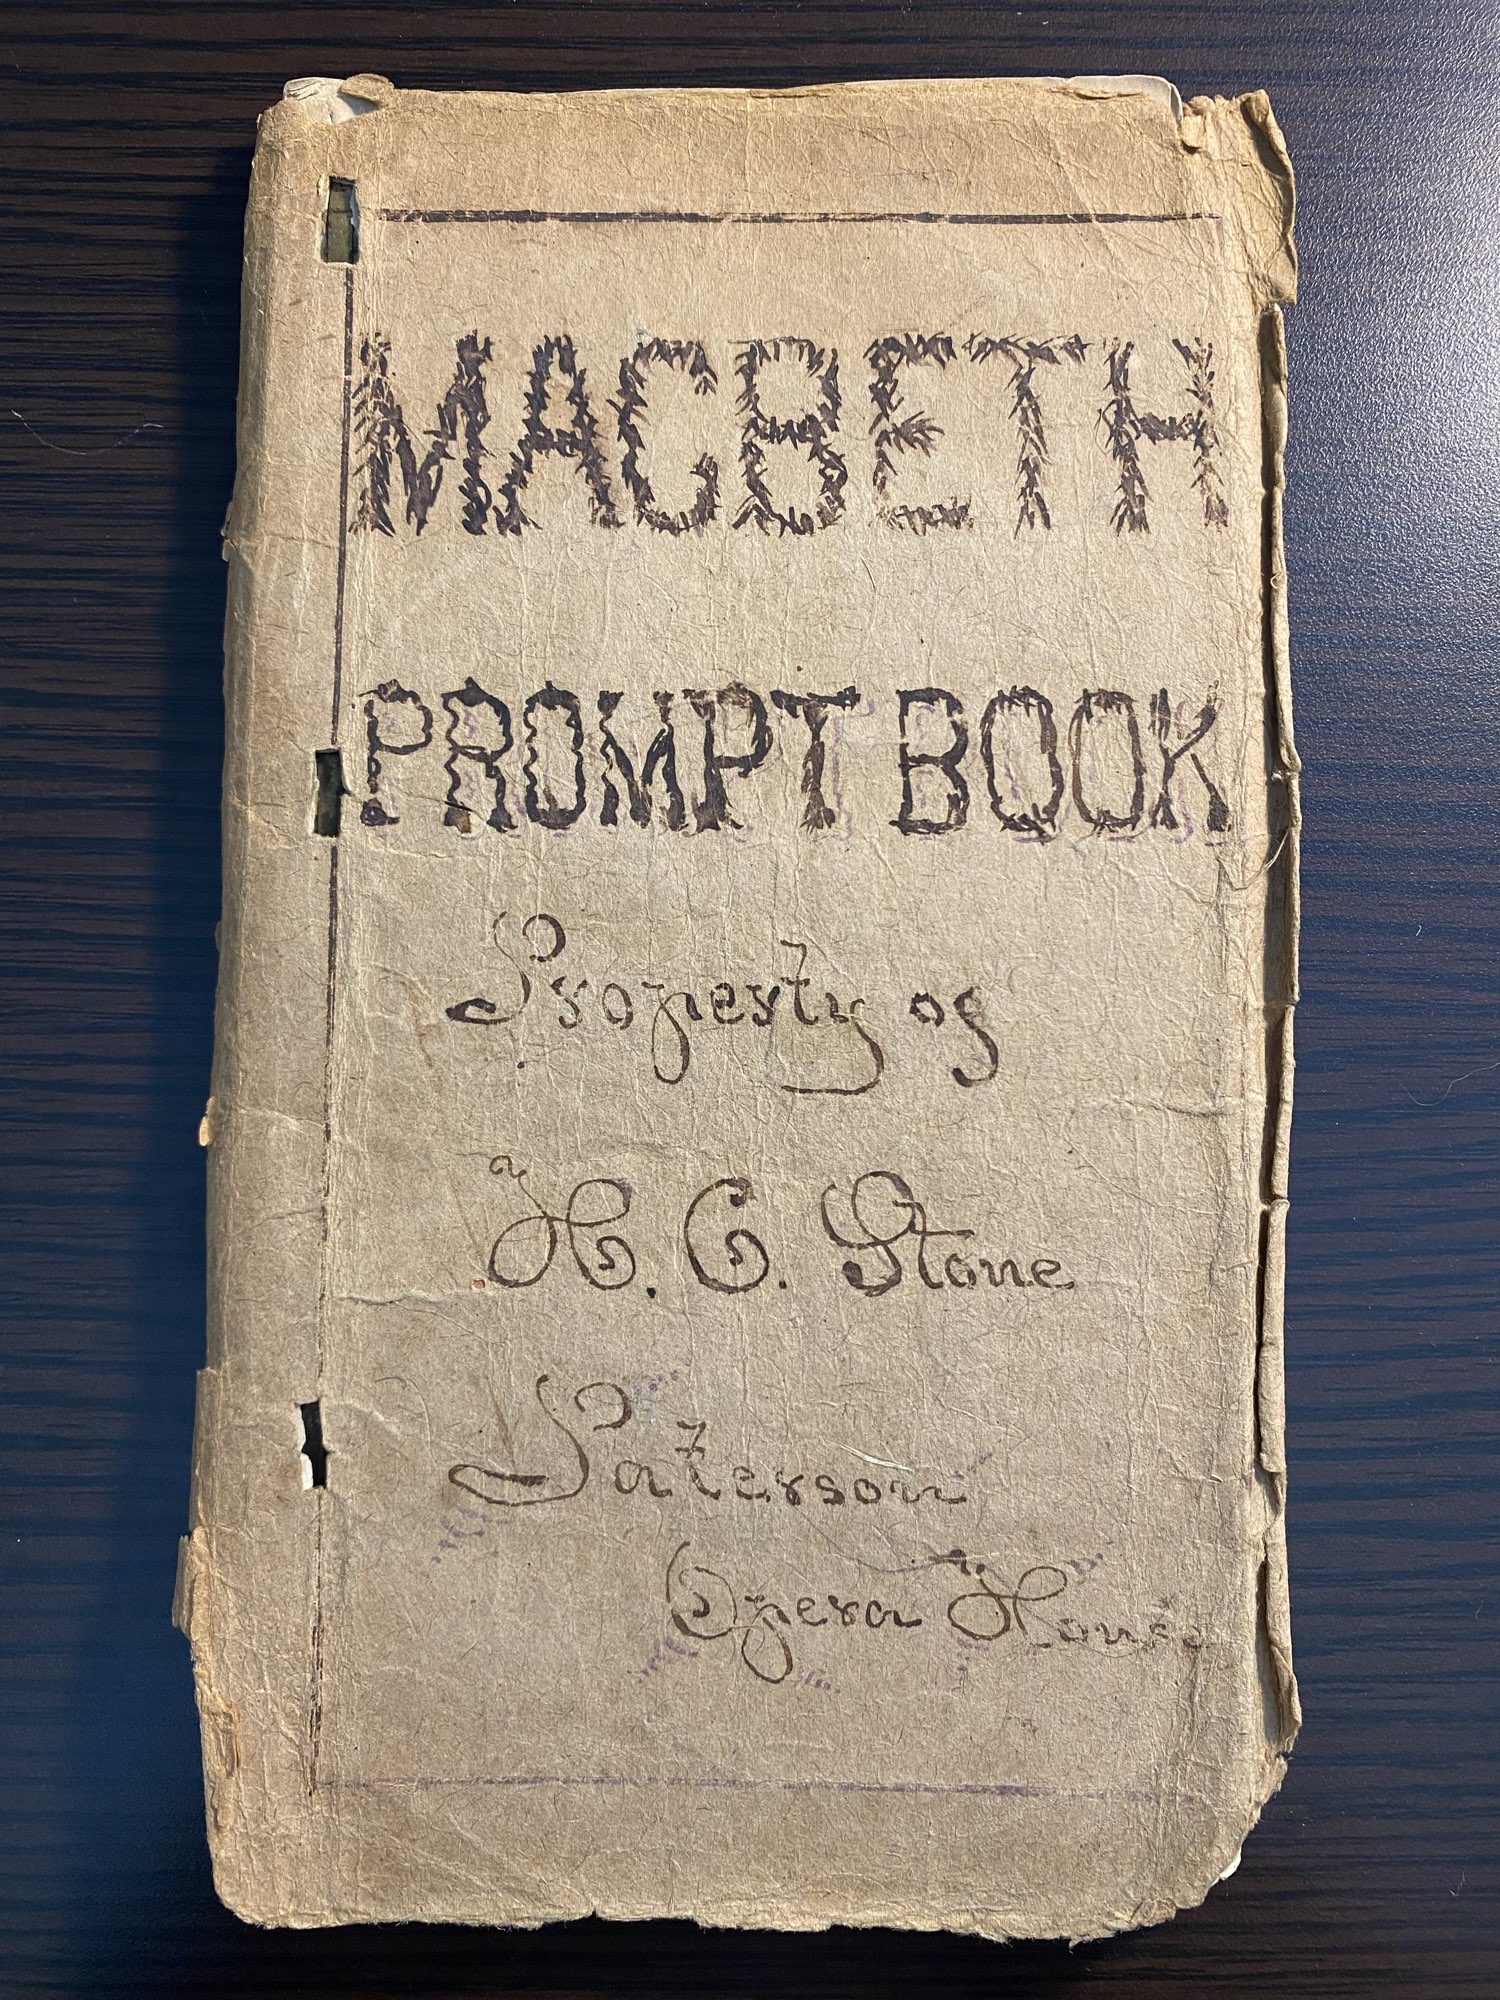 MACBETH
PROMPT BOOK
Property of
H. C. Stone
Paterson
Opera House